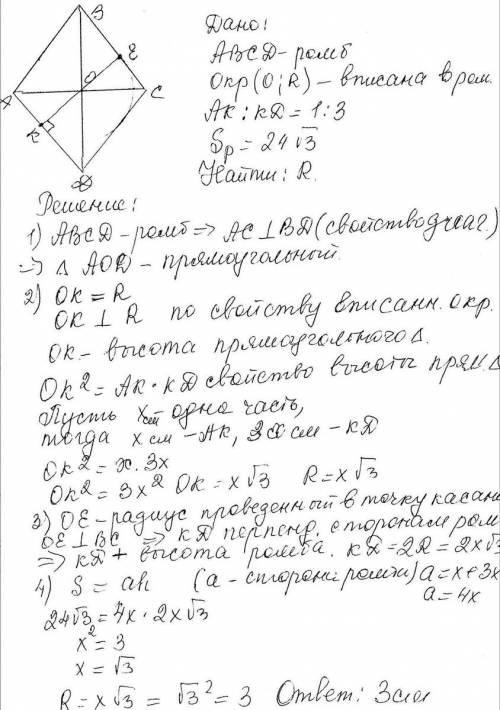 B
E
O
A
C
K
D
Дано:
ABCD - ромб
Окр(O; R) - вписана в ром.
AK : KD = 1:3
Sр = 24√3
Найти: R.
Решение:
1) ABCD - ромб => AC ⊥ BD (свойство диаг.)
=> △ AOD - прямоугольный.
2) OK = R
OK ⊥ R по свойству вписанн. окр.
OK - высота прямоугольного △.
OK² = AK · KD свойство высоты прям △
Пусть x см одна часть,
тогда x см - AK, 3x см - KD
OK² = x · 3x
OK² = 3x² OK = x√3 R = x√3
3) OE - радиус проведенный в точку касани
OE ⊥ BC => KD перпенд. сторонам ром
=> KD + высота ромба. KD = 2R = 2x√3
4) S = ah (a - сторона ромба) a = x + 3x
a = 4x
24√3 = 4x · 2x√3
x² = 3
x = √3
R = x√3 = √3² = 3 Ответ: 3 см